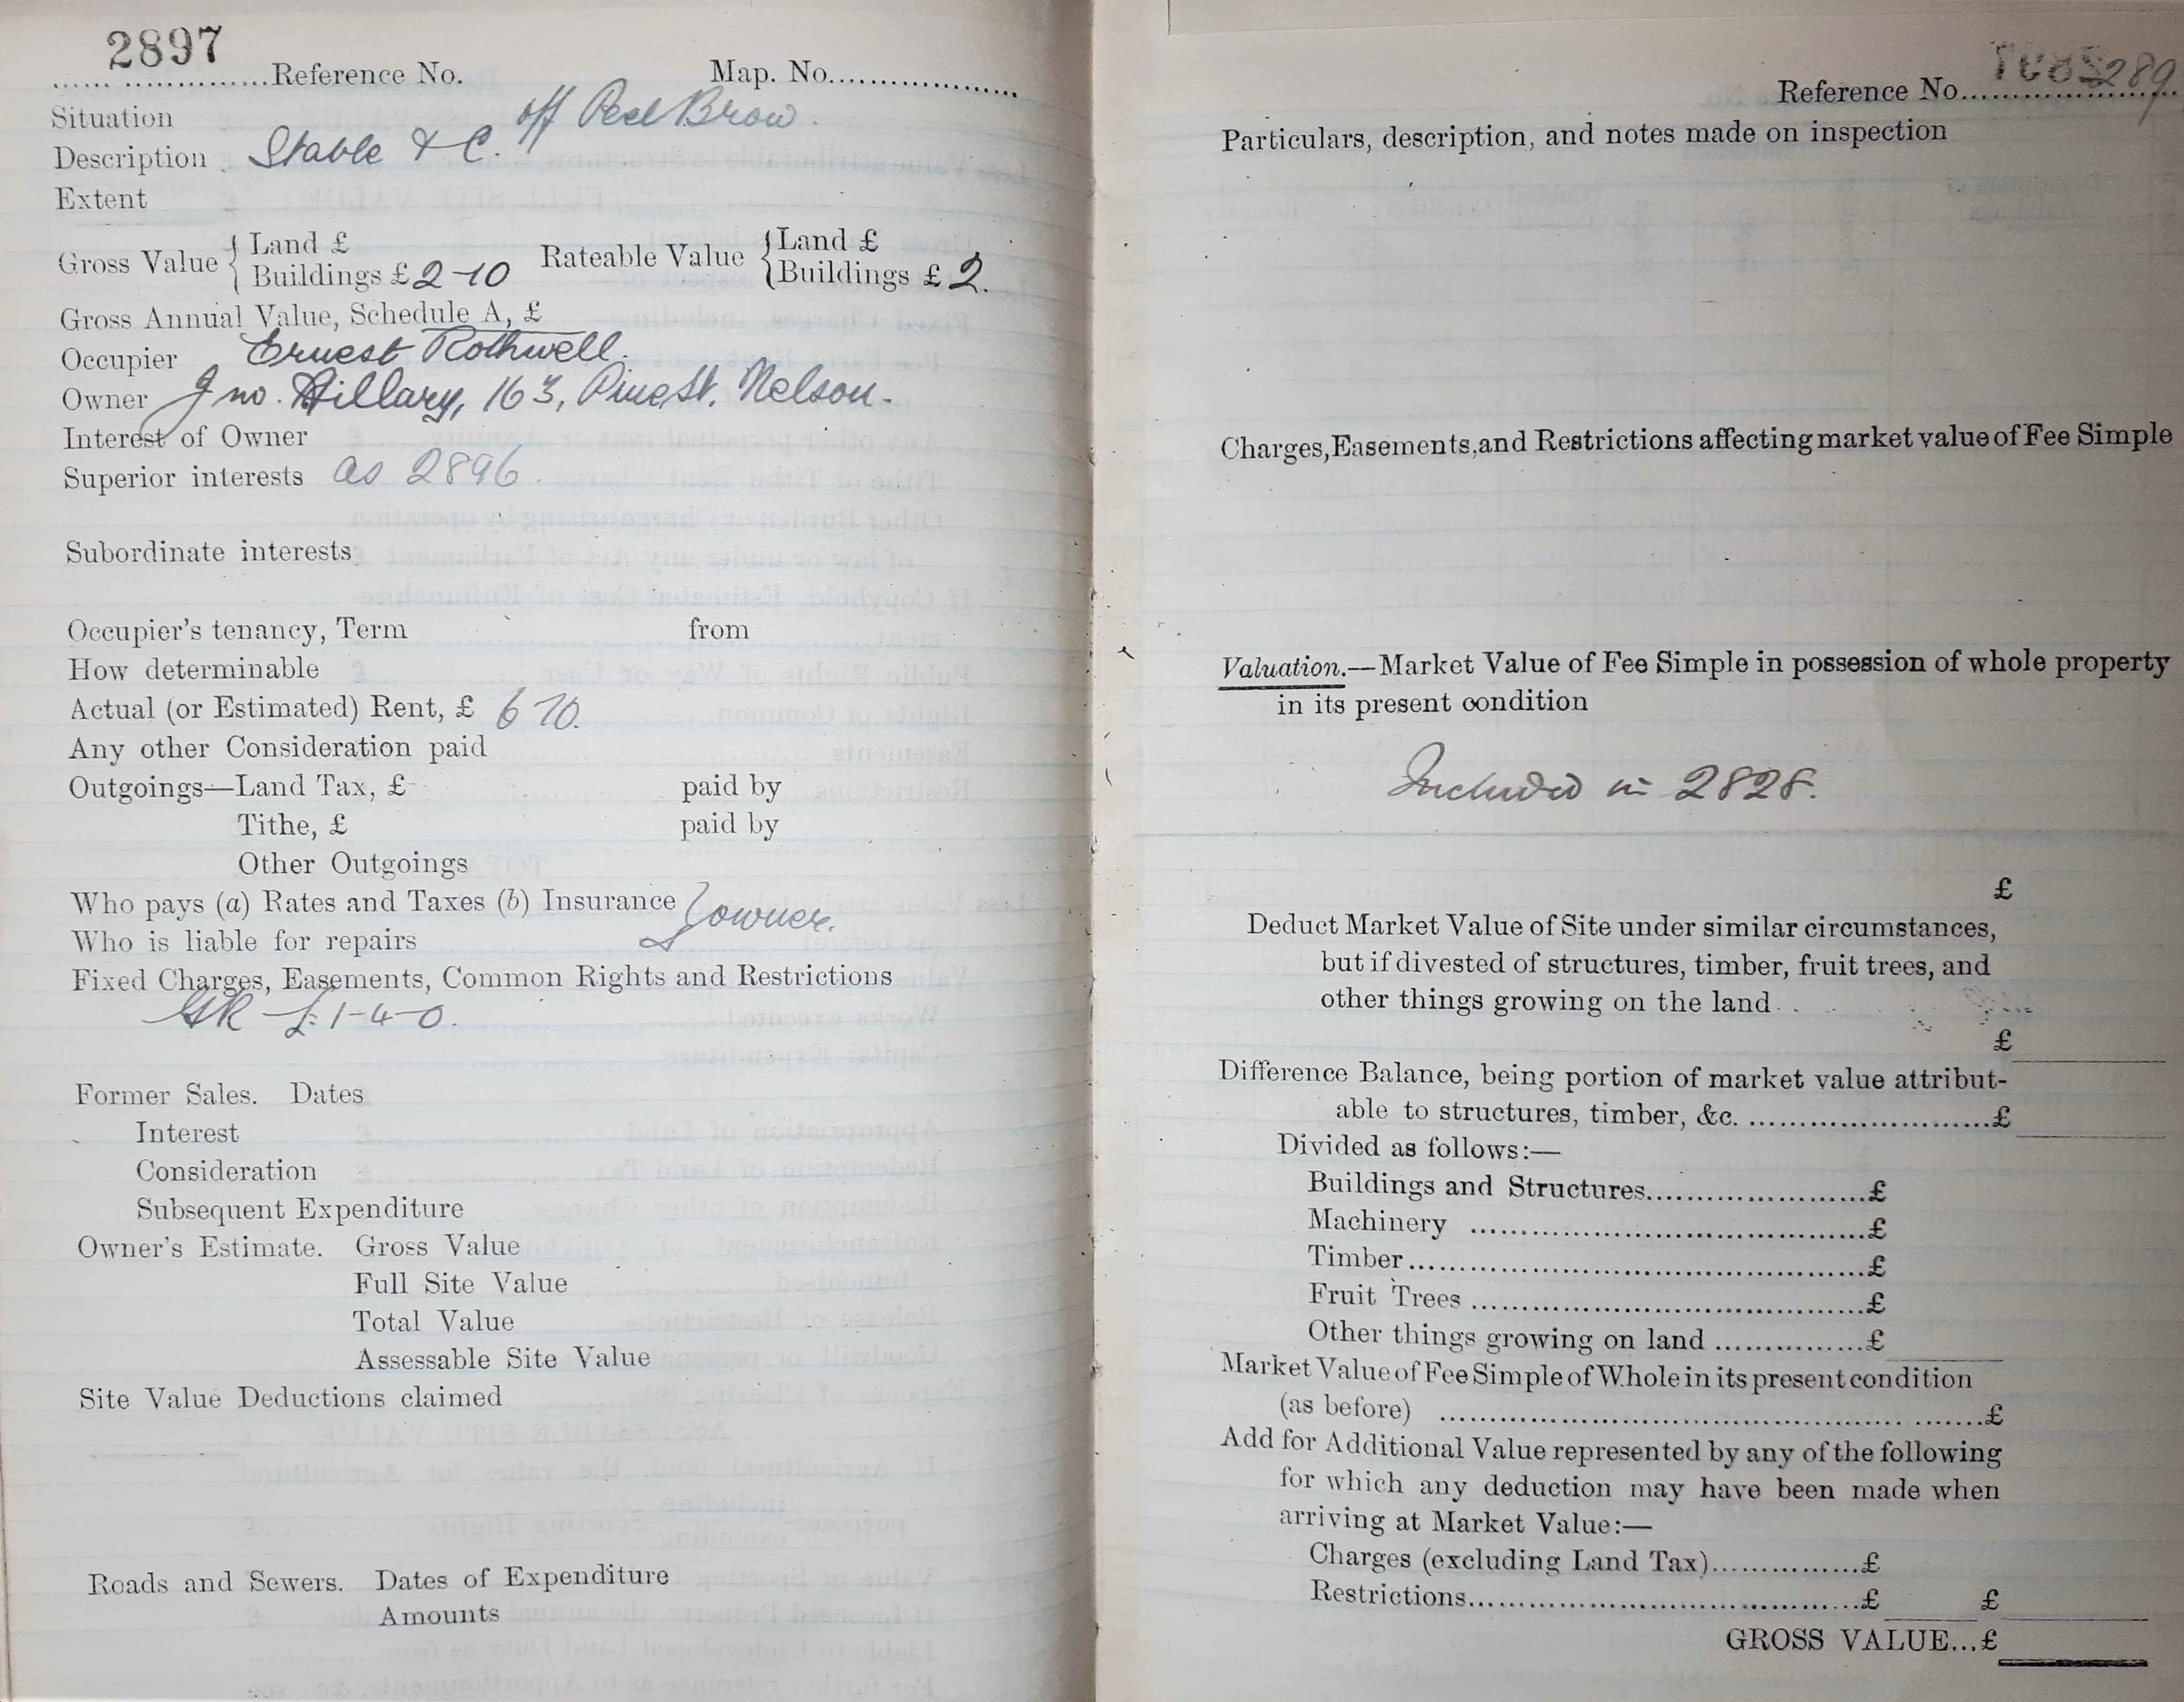 2897
Reference No. Map. No.
Situation off Peel Brow.
Description Stable & C.
Extent
Gross Value { Land £ Rateable Value { Land £
Buildings £ 2-10 Buildings £ 2.
Gross Annual Value, Schedule A, £
Occupier Ernest Rothwell.
Owner Jno. Hillary, 163, Pine St. Nelson.
Interest of Owner
Superior interests as 2896.
Subordinate interests
Occupier's tenancy, Term from
How determinable
Actual (or Estimated) Rent, £ 6 10.
Any other Consideration paid
Outgoings—Land Tax, £ paid by
Tithe, £ paid by
Other Outgoings
Who pays (a) Rates and Taxes (b) Insurance } owner.
Who is liable for repairs
Fixed Charges, Easements, Common Rights and Restrictions
GR £1-4-0.
Former Sales. Dates
Interest
Consideration
Subsequent Expenditure
Owner's Estimate. Gross Value
Full Site Value
Total Value
Assessable Site Value
Site Value Deductions claimed
Roads and Sewers. Dates of Expenditure
Amounts
Reference No.
Particulars, description, and notes made on inspection
Charges, Easements, and Restrictions affecting market value of Fee Simple
Valuation.—Market Value of Fee Simple in possession of whole property
in its present condition
Included in 2828.
£
Deduct Market Value of Site under similar circumstances,
but if divested of structures, timber, fruit trees, and
other things growing on the land
£
Difference Balance, being portion of market value attribut-
able to structures, timber, &c. £
Divided as follows:—
Buildings and Structures £
Machinery £
Timber £
Fruit Trees £
Other things growing on land £
Market Value of Fee Simple of Whole in its present condition
(as before) £
Add for Additional Value represented by any of the following
for which any deduction may have been made when
arriving at Market Value:—
Charges (excluding Land Tax) £
Restrictions £ £
GROSS VALUE...£